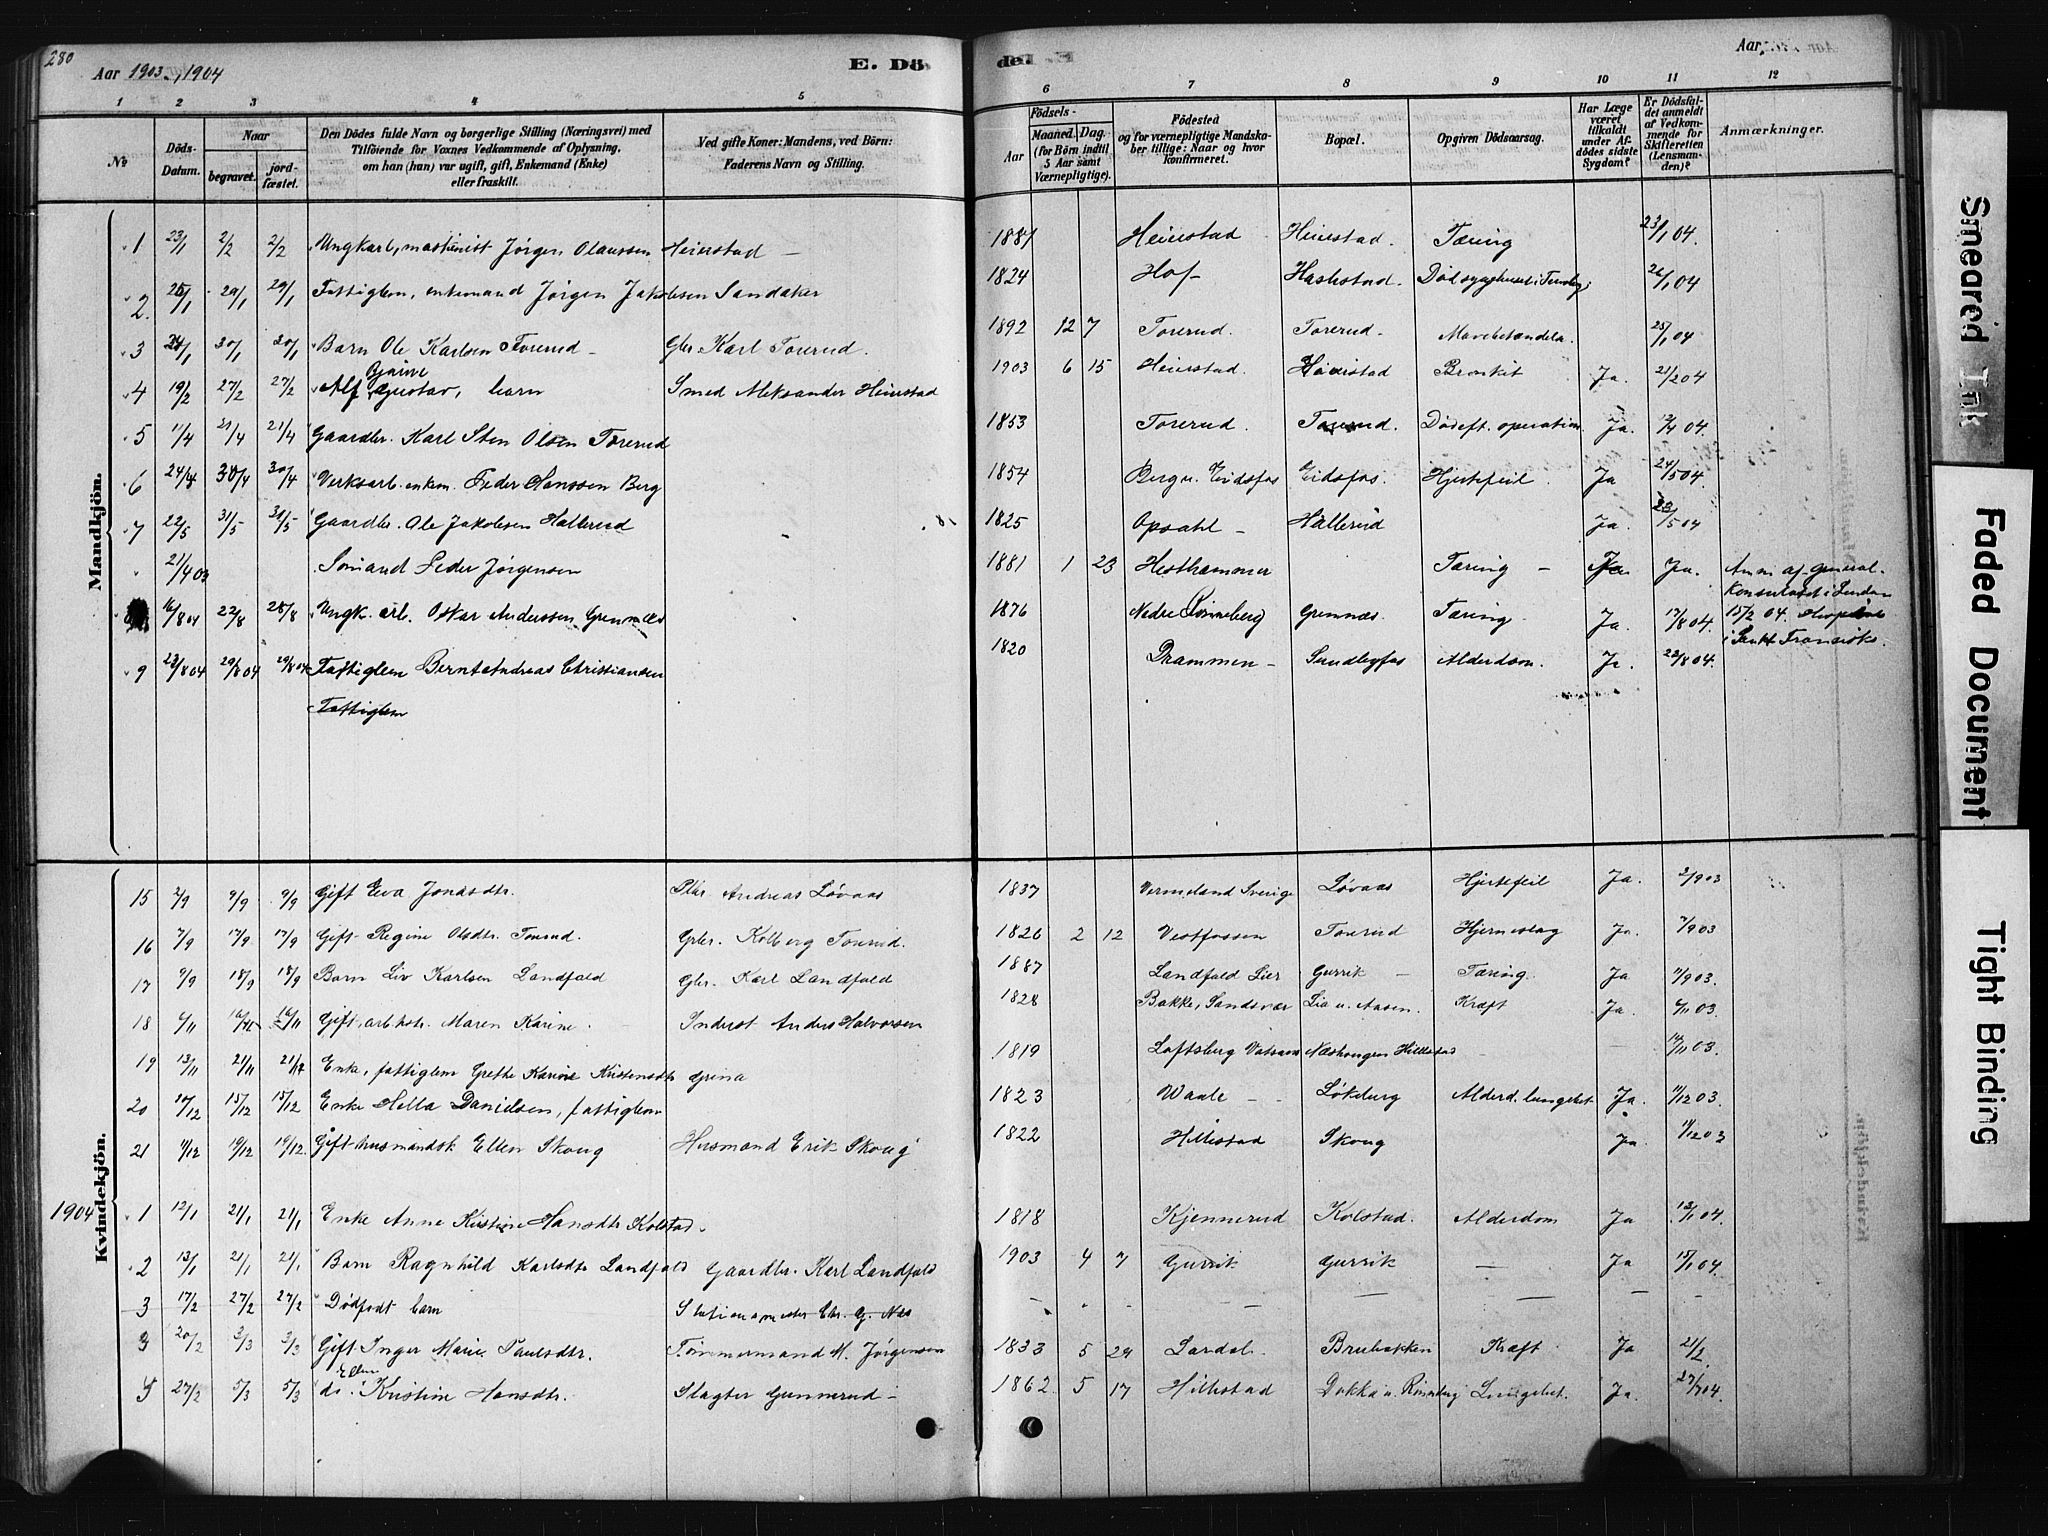 280
Aar 1903, 1904
E. Dö
de.
Aar
1 2 3 4 5 6 7 8 9 10 11 12
No
Döds-Datum.
Naar
begravet.
jord-fæstet.
Den Dödes fulde Navn og borgerlige Stilling (Næringsvei) med
Tilföiende for Voxnes Vedkommende af Oplysning,
om han (hun) var ugift, gift, Enkemand (Enke)
eller fraskilt.
Ved gifte Koner: Mandens, ved Börn:
Faderens Navn og Stilling.
Födsels-
Aar
Maaned. Dag.
(for Börn indtil
5 Aar samt
Værnepligtige).
Födested
og for værnepligtige Mandska-
ber tillige: Naar og hvor
konfirmeret.
Bopæl.
Opgiven Dödsaarsag.
Har Læge
været
tilkaldt
under Af-
dödes sidste
Sygdom?
Er Dödsfal-
det anmeldt
af Vedkom-
mende for
Skifteretten
(Lensman-
den)?
Anmærkninger.
Mandkjön.
1 23/1 2/2 2/2 Ungkarl, maskinist Jörgen Olaussen Heierstad 1881 Heierstad Heierstad. Tæring 23/1 04.
2. 25/1 29/1 29/1 Fattiglem, enkemand Jörgen Jakobsen Sandaker 1824 Hof Haslestad. Död sygehuset i 26/1 04
3 24/1 30/1 30/1 Barn Ole Karlsen Torerud Gbr. Karl Torerud. 1892 12 7 Torerud. Torerud. Mavebetændelse. 25/1 04
4 19/2 27/2 27/2 Alf Bjarne Gustav, barn Smed Aleksander Heierstad 1903 6 15 Heierstad. Heierstad Bronkit Ja. 21/2 04
5 11/4 21/4 21/4 Gaardbr. Karl Sten Olsen Torerud 1853 Torerud. Torerud. Död eft. operation Ja. 12/4 04.
6 24/4 30/4 30/4 Verksarb. enkem. Peder Hanssen Berg 1854 Berg u. Eidsfos Eidsfos. Hjertefeil. Ja 24/5 04.
7 22/5 31/5 31/5 Gaardbr. Ole Jakobsen Hallerud 1825 Opsahl Hallerud Ja. 23/5 04
21/4 03 Sömand Peder Jörgensen 1881 1 23 Hesthammer Tæring Ja. Ja. Anm. af General-
konsulatet i London
16/8 04 22/8 28/8 Ungk. arb. Oskar Anderssen Grennæs 1876 Nedre Rönneberg Grennæs. Tæring Ja. 17/8 04. 15/2 04.
i Sankt Francisko.
9 23/8 04 29/8 04 29/8 04 Fattiglem Bernt Andreas Christiansen 1820 Drammen Sundbyfos Alderdom. Ja. 23/8 04.
Fattiglem
Kvindekjön.
15 2/9 9/9 9/9 Gift Eva Jonasdtr. Andreas Lövaas 1837 Vermeland Sverige Lövaas Hjertefeil Ja. 2/9 03
16 7/9 17/9 17/9 Gift Regine Olsdtr. Torerud. Gbr. Kolberg Torerud. 1826 2 12 Vestfossen Torerud Hjerneslag Ja. 7/9 03
17 9/9 18/9 18/9 Barn Liv Karlsen Landfald Gbr. Karl Landfald 1887 Landfald Lier Gurrik Tæring. Ja 11/9 03.
18 6/11 16/11 16/11 Gift, arb. Maren Karine. Inderst Anders Halvorsen 1828 Bakke, Sandsvær Lia u. Aasen. Kræft Ja. 6/11 03.
19 13/11 21/11 21/12 Enke, fattiglem Grethe Karine Kristensdtr Grina 1819 Loftsberg Vataas Næshaugen Hillestad 14/11 03.
20 10/12 15/12 15/12 Enke Hella Danielsen, fattiglem 1823 Waale Lökeberg Alderd. lungebet. Ja. 11/12 03.
21 11/12 19/12 19/12. Gift husmandsk Ellen Skoug Husmand Erik Skoug 1822 Hillestad Skoug Ja. 11/12 03
1904 1 12/1 21/1 21/1 Enke Anne Kirstine Hansdtr Kolstad 1818 Kjennerud Kolstad. Alderdom Ja 13/1 04.
2 13/1 21/1 21/1 Barn Ragnhild Karlsdtr Landfald Gaardbr. Karl Landfald 1903 4 7 Gurrik Gurrik Ja 15/1 04.
3 17/2 27/2 27/2 Dödfødt barn Stationsmester Chr. G. Næs
3 20/2 3/3 3/3 Gift Inger Marie Paulsdtr. Tömmermand M. Jörgensen 1833 5 29 Lardal. Brubakken Kræft Ja 21/2.
27/2 5/3 5/3 do. Ellen Kristine Hansdtr. Slagter Gunnerud 1862. 5 17 Hillestad Dokka u. Rönneberg Lungebet. Ja. 27/2 04.
Smeared Ink
Faded Document
Tight Binding